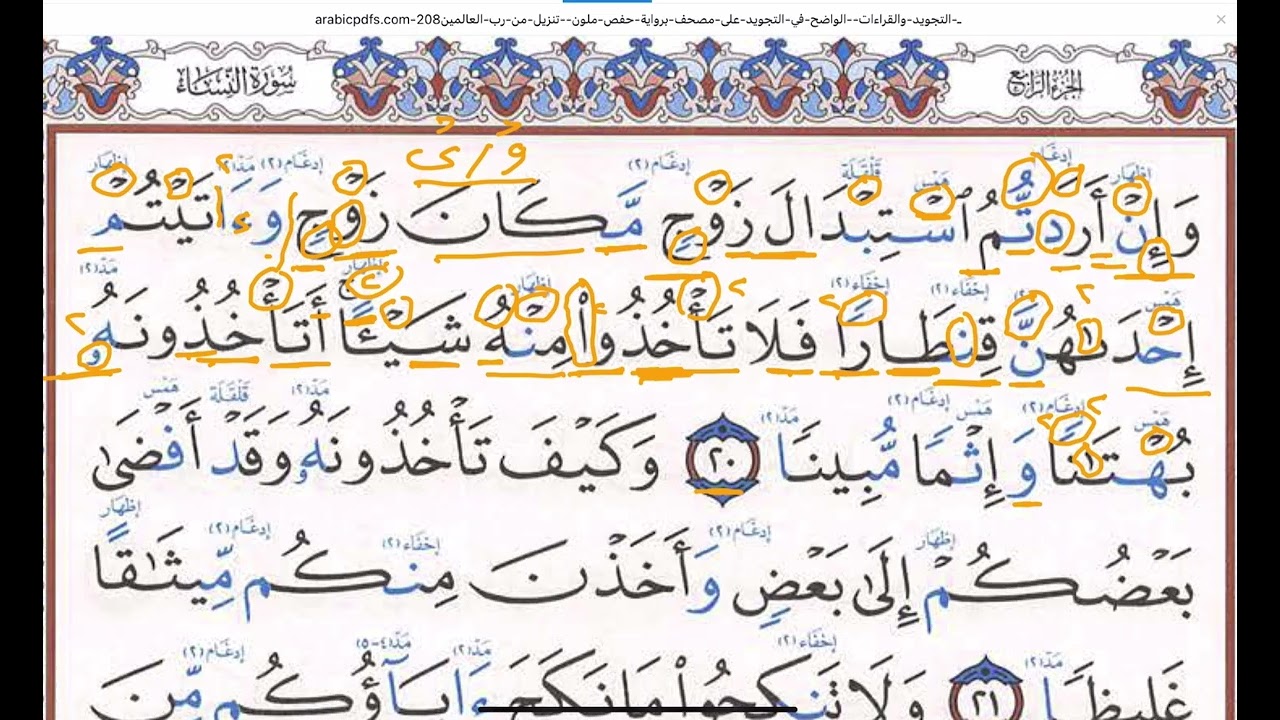 ـ-التجويد-والقراءات--الواضح-في-التجويد-على-مصحف-برواية-حفص-ملون--تنزيل-من-رب-العالمين208-arabicpdfs.com
الجزء الرابع
سورة النساء
إظهار إدغام همس قلقلة إدغام (٢) إدغام (٢) مد (٢) إظهار
وَإِنْ أَرَدتُّمُ ٱسْتِبْدَالَ زَوْجٍ مَّكَانَ زَوْجٍ وَءَاتَيْتُمْ
همس إخفاء (٢) إخفاء (٢) إظهار إظهار مد (٢)
إِحْدَىٰهُنَّ قِنطَارًا فَلَا تَأْخُذُوا۟ مِنْهُ شَيْـًٔا أَتَأْخُذُونَهُۥ
همس إدغام (٢) همس إدغام (٢) مد (٢) مد (٢) قلقلة همس
بُهْتَـٰنًا وَإِثْمًا مُّبِينًا ٢٠ وَكَيْفَ تَأْخُذُونَهُۥ وَقَدْ أَفْضَىٰ
إظهار إدغام (٢) إخفاء (٢) إدغام (٢) إظهار
بَعْضُكُمْ إِلَىٰ بَعْضٍ وَأَخَذْنَ مِنكُم مِّيثَـٰقًا
مد (٢) إخفاء (٢) مد (٢) مد (٤-٥) إدغام (٢)
غَلِيظًا ٢١ وَلَا تَنكِحُوا۟ مَا نَكَحَ ءَابَآؤُكُم مِّنَ